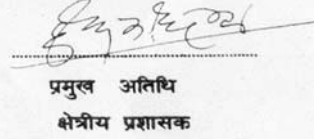 प्रमुख अतिथि
क्षेत्रीय प्रशासक